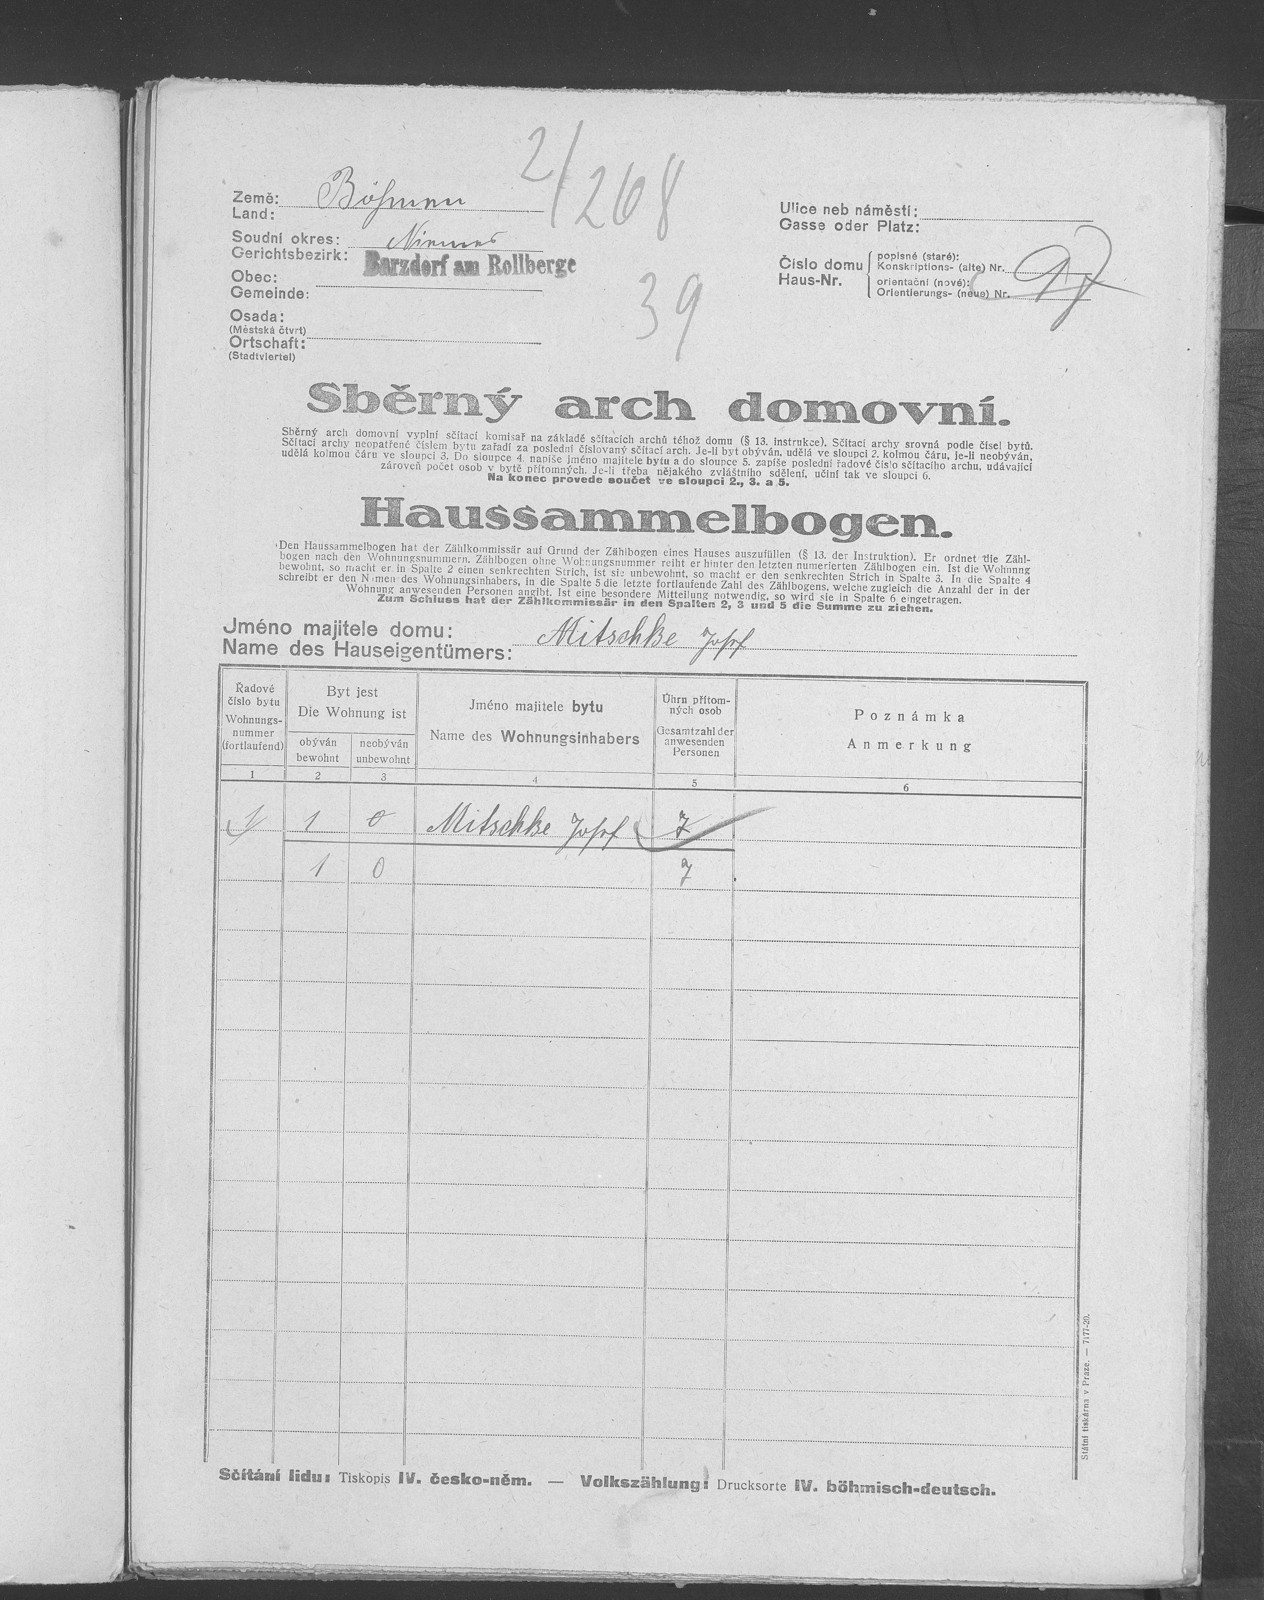 2/268
Země: Böhmen
Land:
Soudní okres: Niemes
Gerichtsbezirk:
Barzdorf am Rollberge
Obec:
Gemeinde:
Osada:
(Městská čtvrt)
Ortschaft:
(Stadtviertel)
39
Ulice neb náměstí:
Gasse oder Platz:
Číslo domu
Haus-Nr.
popisné (staré):
Konskriptions- (alte) Nr.
orientační (nové):
Orientierungs- (neue) Nr.
Sběrný arch domovní.
Sběrný arch domovní vyplní sčítací komisař na základě sčítacích archů téhož domu (§ 13. instrukce). Sčítací archy srovná podle čísel bytů.
Sčítací archy neopatřené číslem bytu zařadí za poslední číslovaný sčítací arch. Je-li byt obýván, udělá ve sloupci 2. kolmou čáru, je-li neobýván,
udělá kolmou čáru ve sloupci 3. Do sloupce 4. napíše jméno majitele bytu a do sloupce 5. zapíše poslední řadové číslo sčítacího archu, udávající
zároveň počet osob v bytě přítomných. Je-li třeba nějakého zvláštního sdělení, učiní tak ve sloupci 6.
Na konec provede součet ve sloupci 2., 3. a 5.
Haussammelbogen.
Den Haussammelbogen hat der Zählkommissär auf Grund der Zählbogen eines Hauses auszufüllen (§ 13. der Instruktion). Er ordnet die Zähl-
bogen nach den Wohnungsnummern. Zählbogen ohne Wohnungsnummer reiht er hinter den letzten numerierten Zählbogen ein. Ist die Wohnung
bewohnt, so macht er in Spalte 2 einen senkrechten Strich, ist sie unbewohnt, so macht er den senkrechten Strich in Spalte 3. In die Spalte 4
schreibt er den Namen des Wohnungsinhabers, in die Spalte 5 die letzte fortlaufende Zahl des Zählbogens, welche zugleich die Anzahl der in der
Wohnung anwesenden Personen angibt. Ist eine besondere Mitteilung notwendig, so wird sie in Spalte 6 eingetragen.
Zum Schluss hat der Zählkommissär in den Spalten 2, 3 und 5 die Summe zu ziehen.
Jméno majitele domu: Mitschke Josef
Name des Hauseigentümers:
Řadové
číslo bytu
Wohnungs-
nummer
(fortlaufend)
Byt jest
Die Wohnung ist
obýván
bewohnt
neobýván
unbewohnt
Jméno majitele bytu
Name des Wohnungsinhabers
Úhrn přítom-
ných osob
Gesamtzahl der
anwesenden
Personen
Poznámka
Anmerkung
1 2 3 4 5 6
1 1 0 Mitschke Josef 7
1 0 7
Státní tiskárna v Praze. — 7177-20.
Sčítání lidu: Tiskopis IV. česko-něm. — Volkszählung: Drucksorte IV. böhmisch-deutsch.